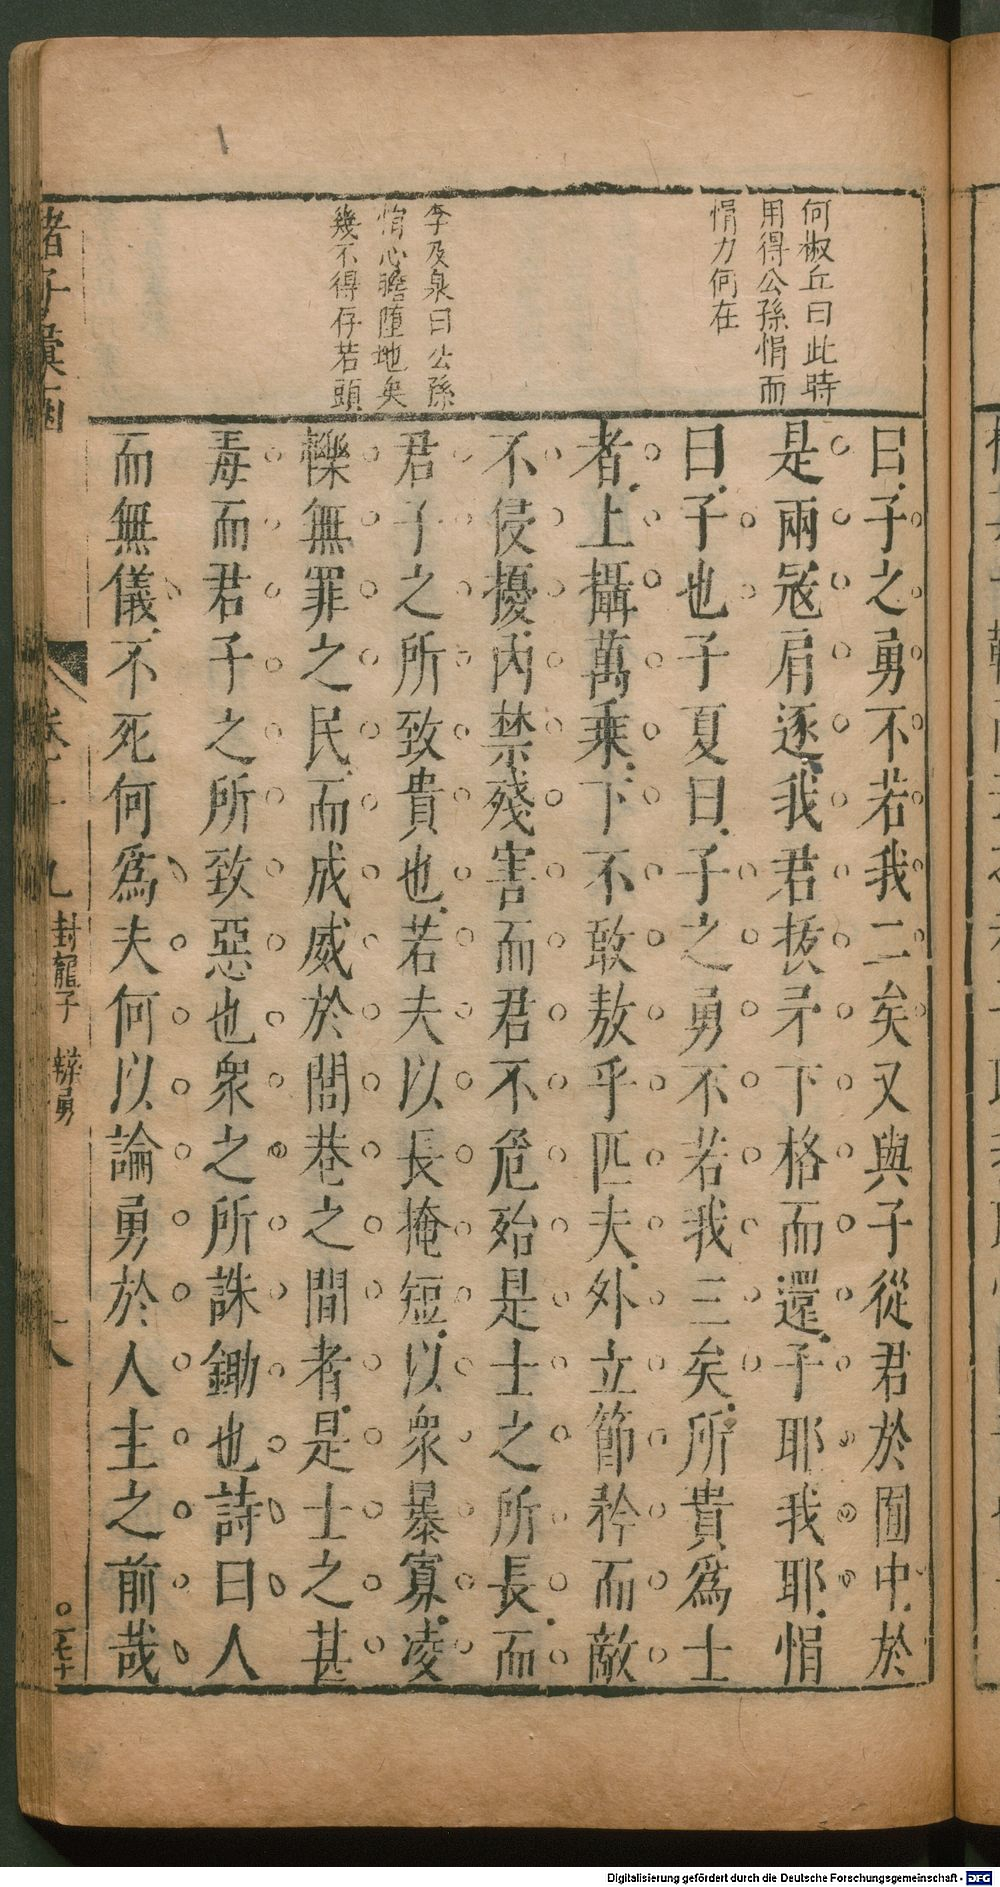 何椒丘曰此時
用得公孫悁而
悁力何在
李及泉曰公孫
悁心膽墮地矣
幾不得存若頭
曰子之勇不若我二矣又與子從君於囿中於
是兩寇肩逐我君拔矛下格而還子耶我耶悁
曰子也子夏曰子之勇不若我三矣所貴為士
者上攝萬乘下不敢敖乎匹夫外立節矜而敵
不侵擾內禁殘害而君不危殆是士之所長而
君子之所致貴也若夫以長掩短以衆暴寡凌
轢無罪之民而成威於閭巷之間者是士之甚
毒而君子之所致惡也衆之所誅鋤也詩曰人
而無儀不死何爲夫何以論勇於人主之前哉
諸子彙函
封龍子 辯勇
Digitalisierung gefördert durch die Deutsche Forschungsgemeinschaft - DFG